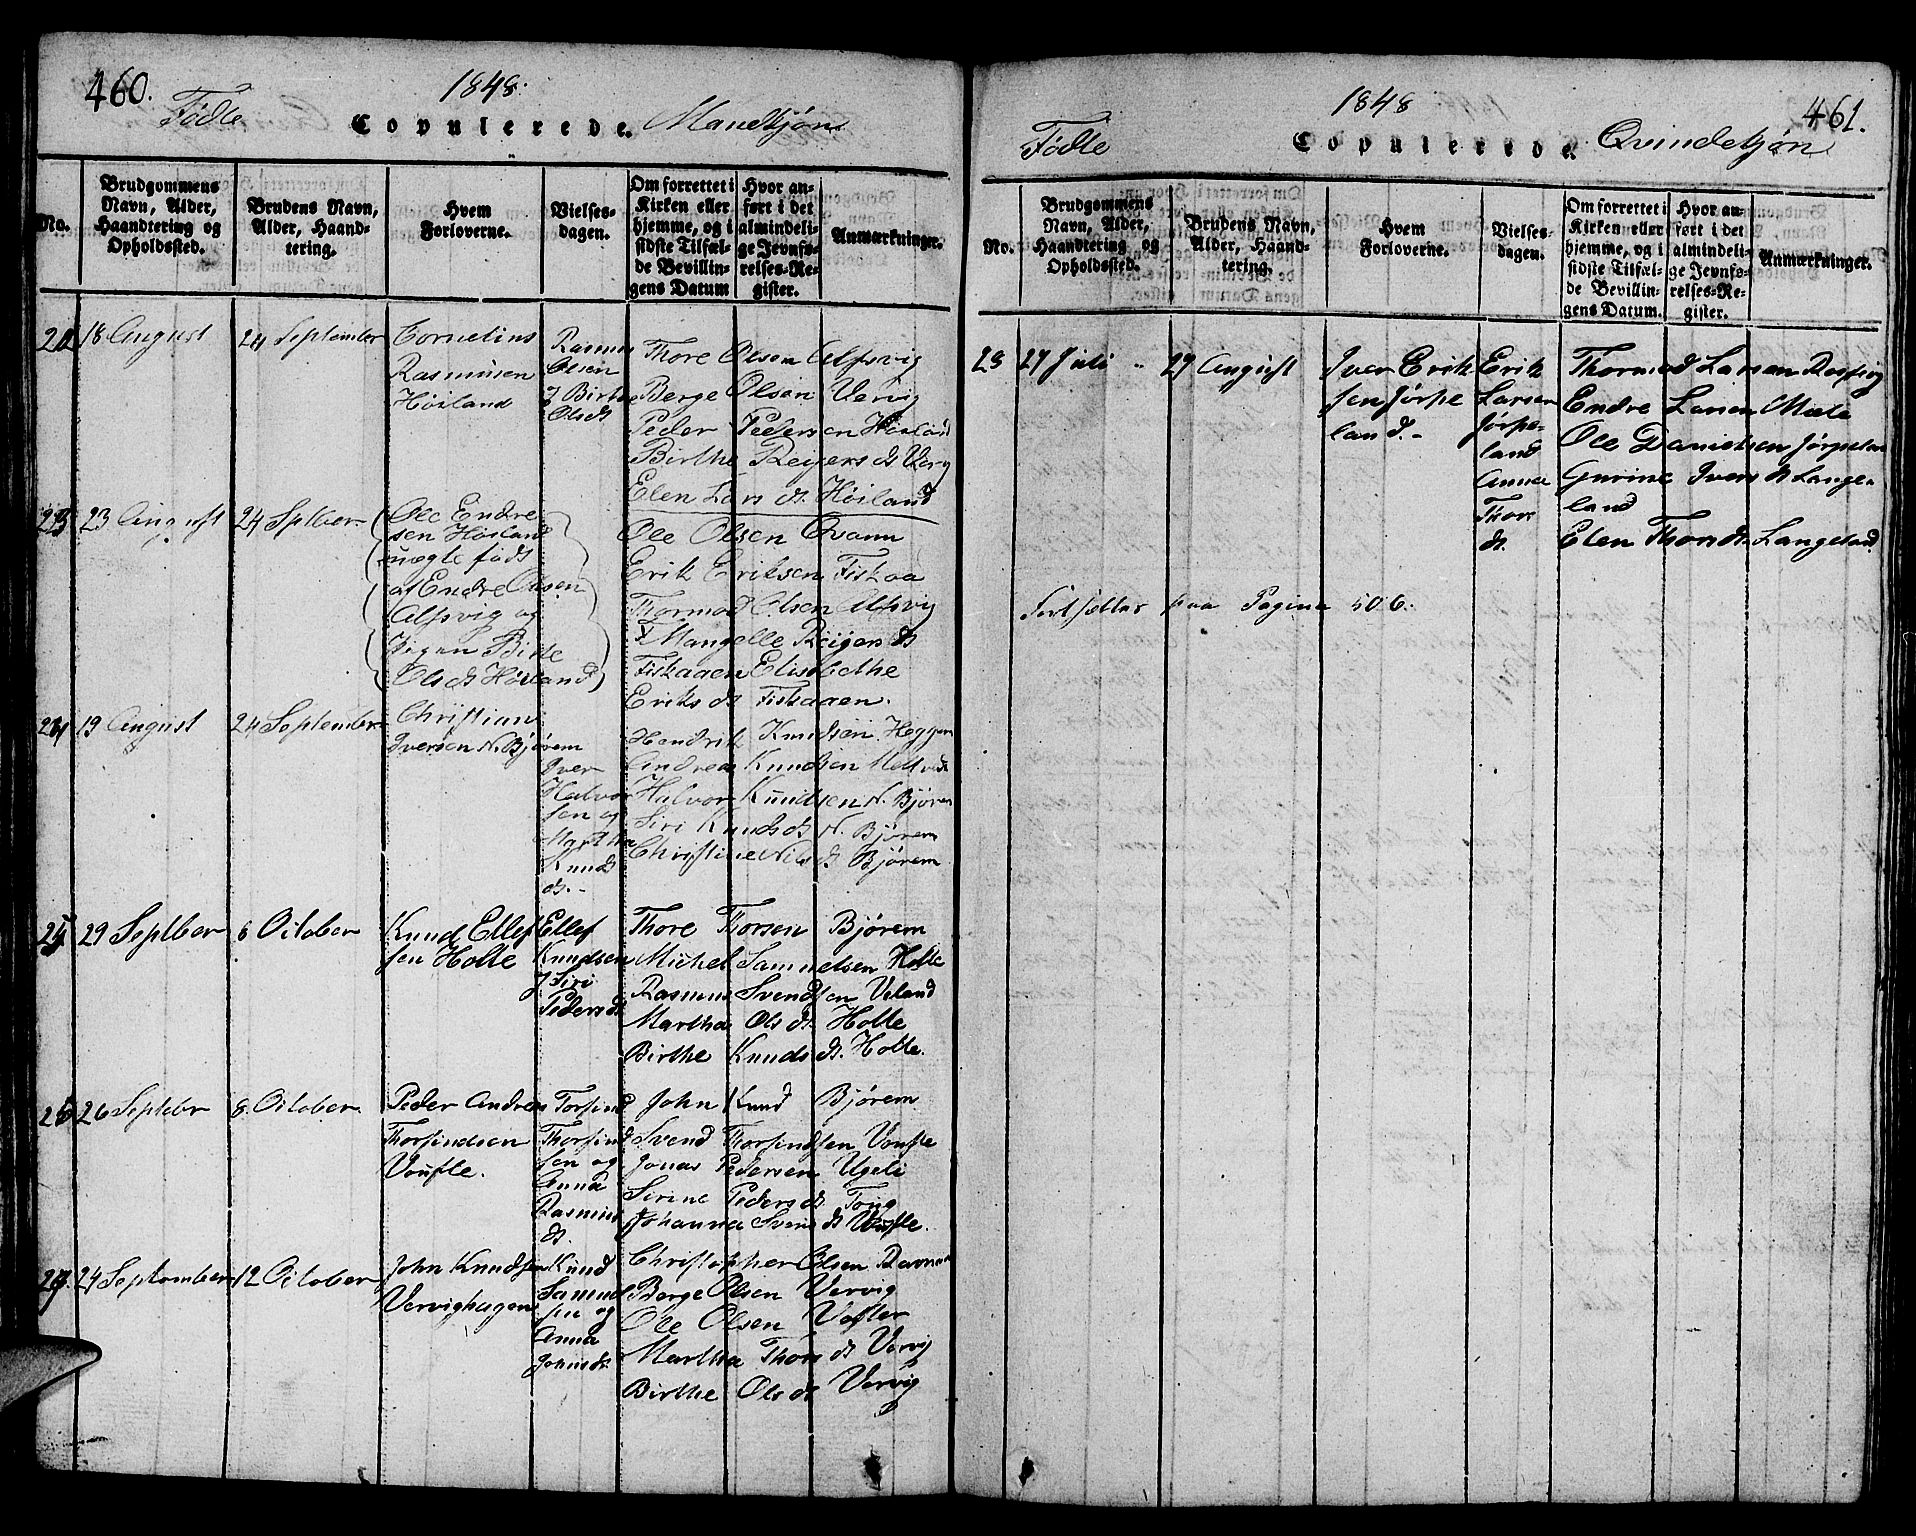 460.
1848.
Fødte
Copulerede.
Mandkjøn
No.
Brudgommens
Navn, Alder,
Haandtering og
Opholdssted.
Brudens Navn,
Alder, Haand-
tering.
Hvem
Forloverne.
Vielses-
dagen.
Om forrettet i
Kirken eller
hjemme, og i
sidste Tilfæl-
de Bevillin-
gens Datum
Hvor an-
ført i det
almindeli-
ge Jevnfø-
relses-Re-
gister.
Anmærkninger.
22 18 August
24 September
Cornelius
Rasmusen
Høiland
Rasmus
Olsen
J Birthe
Olsdt
Thore Olsen Alfsvig
Berge Olsen Vervig
Peder Pedersen Høiland
Birthe Reiersdt Vervig
Elen Larsdt Høiland
23 23 August
24 Septber
Ole Endre
sen Høiland
uægte født
af Endre Olsen
Alfsvig og
Pigen Birte
Olsdt Høiland
Ole Olsen Qvam
Erik Eriksen Fiskaa
Thormod Olsen Alfsvig
Mangelle Reiersdt
Fiskaaen Elisbethe
Eriksdt Fiskaaen.
24 19 August
24 September
Christian
Iversen N. Bjørem
Iver
Halvor
sen og
Martha
Knuds
dt.-
Hendrik Knudsen Heggen
Andreas Knudsen
Halvor Knudsen N. Bjørem
Siri Knudsdt N. Bjørem
Christine Nilsdt Bjørem
25 29 Septber
8 October
Knud Ellef
sen Holte
Ellef
Knudsen
J Siri
Pedersdt
Thore Thorsen Bjørem
Michel Samuelsen Holte
Rasmus Svendsen Veland
Martha Olsdt. Holte
Birthe Knudsdt. Holte.
26 26 Septebr
8. October.
Peder Andreas
Thorfindsen
Voufle.
Torfind
Thorfind
sen og
Anna
Rasmus
dt.
John Knud Bjørem
Svend Thorfindsen Voufle
Jonas Pedersen Ugeli
Sirine Pedersdt Toug
Johanna Svensdt Voufle.
27. 24 September
12 October
John Knudsen
Vervighagen
Knud
Samuel
sen og
Anna
Johnsdt
Christopher Olsen
Berge Olsen Vervig
Ole Olsen
Martha Thorsdt Vervig
Birthe Olsdt Vervig
1848
461.
Fødte
Copulerede.
Qvindekjøn
No.
Brudgommens
Navn, Alder,
Haandtering og
Opholdssted.
Brudens Navn,
Alder, Haand-
tering.
Hvem
Forloverne.
Vielses-
dagen.
Om forrettet i
Kirken eller
hjemme, og i
sidste Tilfæl-
de Bevillin-
gens Datum.
Hvor an-
ført i det
almindeli-
ge Jevnfø-
relses-Re-
gister.
Anmærkninger.
23 27 Juli
27 August
Iver Erik
sen Jørpe
land.-
Erik
Larsen
Jørpe-
land
Anna
Thors
dt.
Thormod Larsen
Endre Larsen Mæle
Ole Danielsen Jørpeland
Gurine Iversdt Lange
land
Elen Thorsdt. Langeland.
Fortsættes paa Pagina 506.